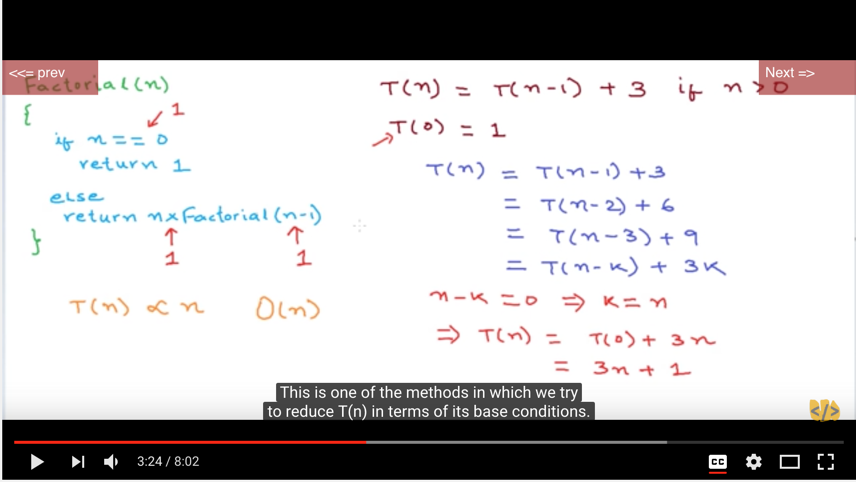 <<= prev
Next =>
Factorial(n)
{
1
if n == 0
return 1
else
return n×Factorial(n-1)
1 1
}
T(n) ∝ n O(n)
T(n) = T(n-1) + 3 if n > 0
T(0) = 1
T(n) = T(n-1) + 3
= T(n-2) + 6
= T(n-3) + 9
= T(n-k) + 3k
n-k = 0 ⇒ k = n
⇒ T(n) = T(0) + 3n
= 3n + 1
This is one of the methods in which we try
to reduce T(n) in terms of its base conditions.
</>
3:24 / 8:02
CC